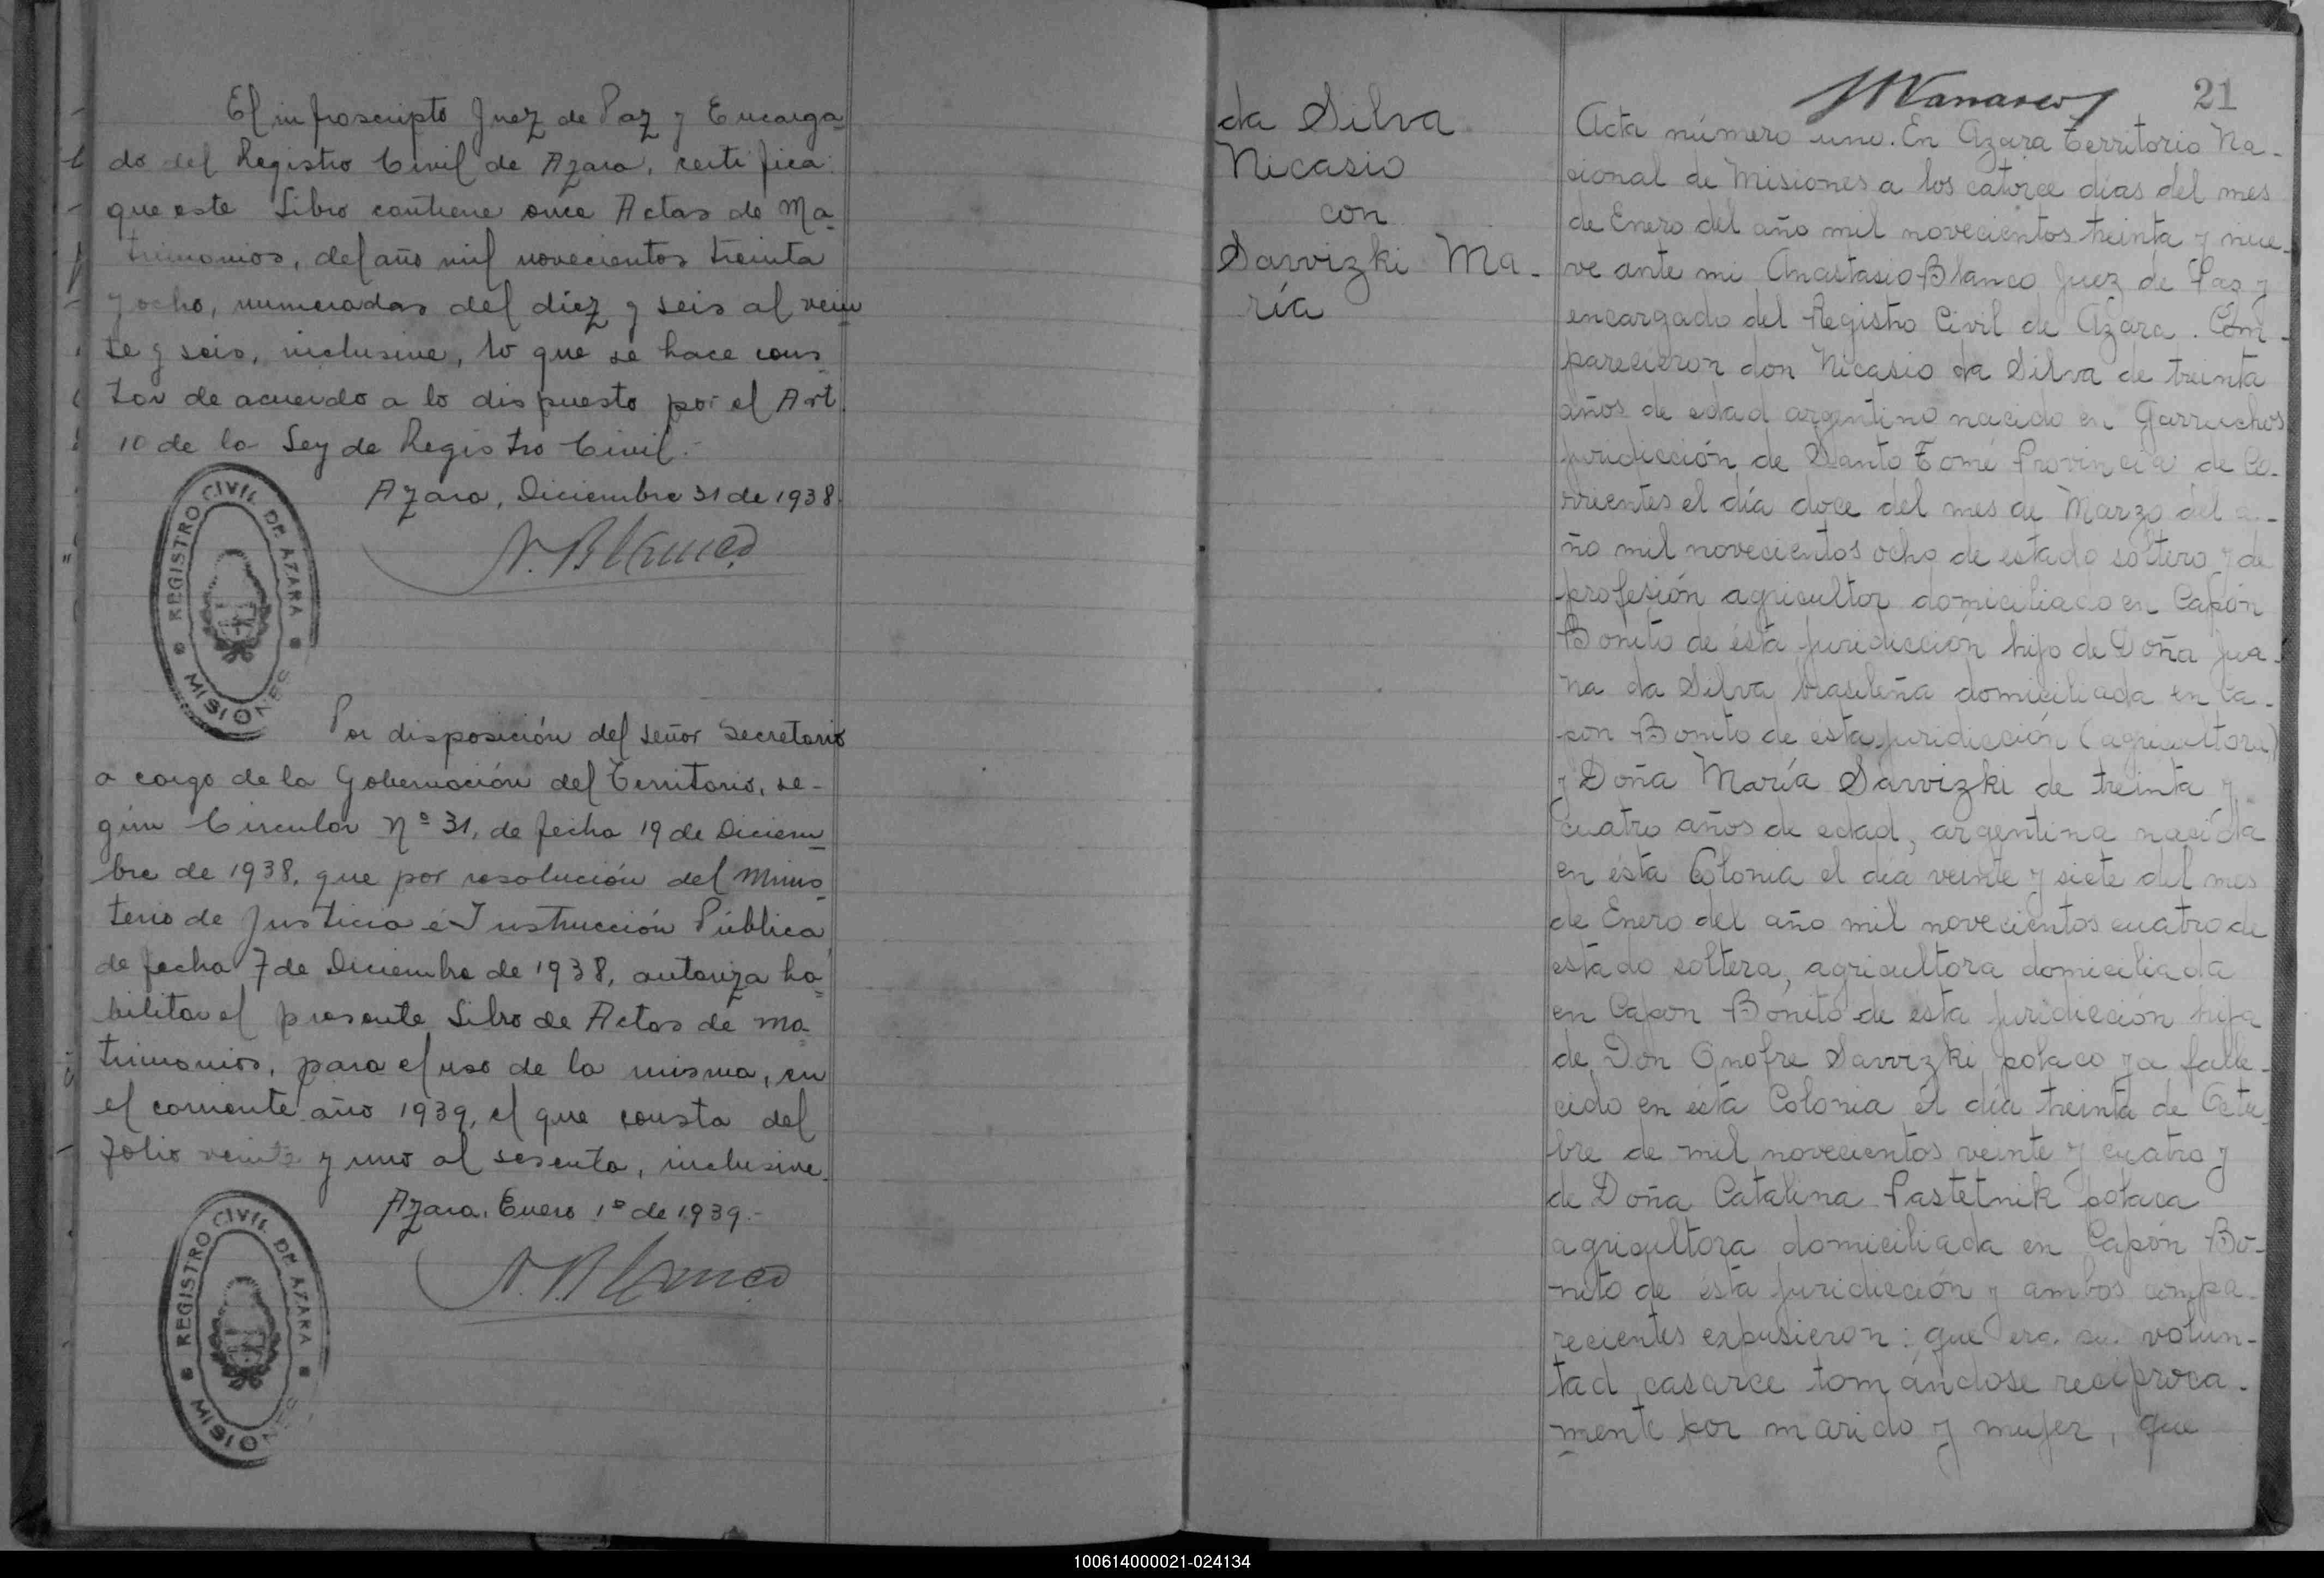 El infrascripto Juez de Paz y Encarga
do del Registro Civil de Azara, certifica:
que este Libro contiene once Actas de Ma
trimonios, del año mil novecientos treinta
y ocho, numeradas del diez y seis al vein
te y seis, inclusive, lo que se hace cons
tar de acuerdo a lo dispuesto por el Art.
10 de la Ley de Registro Civil.-
Azara, Diciembre 31 de 1938.
A. Blanco
REGISTRO CIVIL DE AZARA
MISIONES
Por disposición del señor Secretario
a cargo de la Gobernación del Territorio, se-
gún Circular Nº 31, de fecha 19 de Diciem
bre de 1938, que por resolución del Minis
terio de Justicia é Instrucción Pública
de fecha 7 de Diciembre de 1938, autoriza ha
bilitar el presente Libro de Actas de Ma
trimonios, para el uso de la misma, en
el corriente año 1939, el que consta del
folio veinte y uno al sesenta, inclusive.
Azara, Enero 1º de 1939.-
A. Blanco
REGISTRO CIVIL DE AZARA
MISIONES
da Silva
Nicasio
con
Savvizki Ma-
ría
21
Acta número uno. En Azara Territorio Na-
cional de Misiones a los catorce días del mes
de Enero del año mil novecientos treinta y nue-
ve ante mi Anastasio Blanco Juez de Paz y
encargado del Registro Civil de Azara. Com-
parecieron don Nicasio da Silva de treinta
años de edad argentino nacido en Garruchos
juridicción de Santo Tomé Provincia de Co-
rrientes el día doce del mes de Marzo del a-
ño mil novecientos ocho de estado soltero y de
profesión agricultor domiciliado en Capón
Bonito de ésta juridicción hijo de Doña Jua-
na da Silva brasileña domiciliada en Ca-
pon Bonito de ésta juridicción (agricultora)
y Doña María Savvizki de treinta y
cuatro años de edad, argentina nacida
en ésta Colonia el día veinte y siete del mes
de Enero del año mil novecientos cuatro de
estado soltera, agricultora domiciliada
en Capon Bonito de ésta juridicción hija
de Don Onofre Savvizki polaco ya falle-
cido en ésta Colonia el día treinta de Octu-
bre de mil novecientos veinte y cuatro y
de Doña Catalina Pastetnik polaca
agricultora domiciliada en Capón Bo-
nito de ésta juridicción y ambos compa-
recientes expusieron: que era su volun-
tad casarce tomándose reciproca-
mente por marido y mujer, que
100614000021-024134